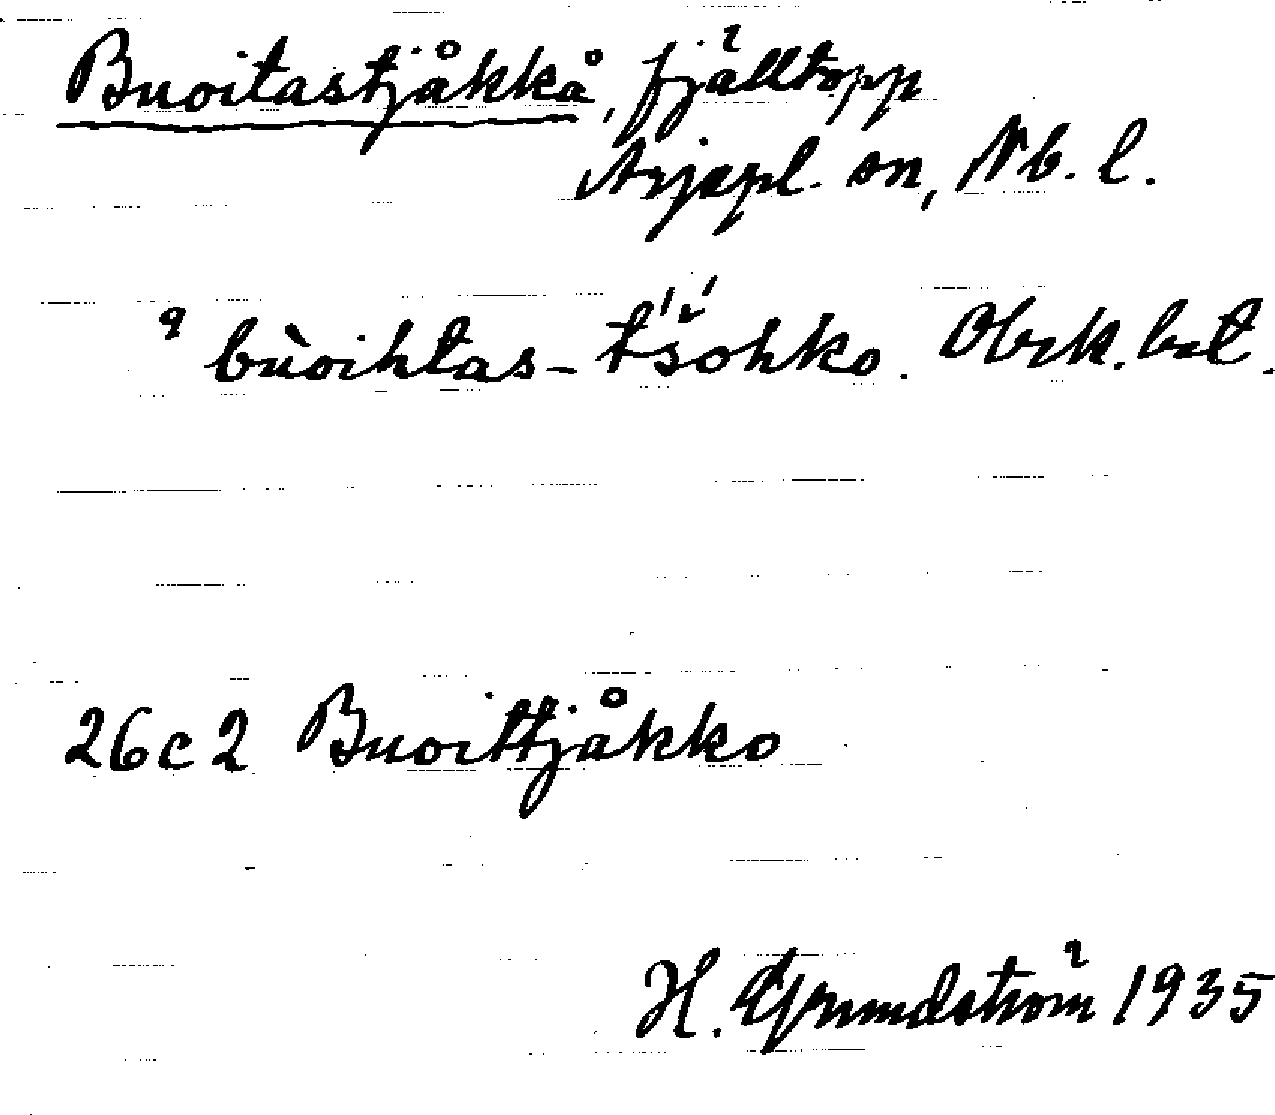 Buoitastjåkkå, fjälltopp
Arjepl. sn, Nb. l.
bùoihtas-t́śohko. Obek. bet.
26c2 Buoittjåkko
H. Grundström 1935